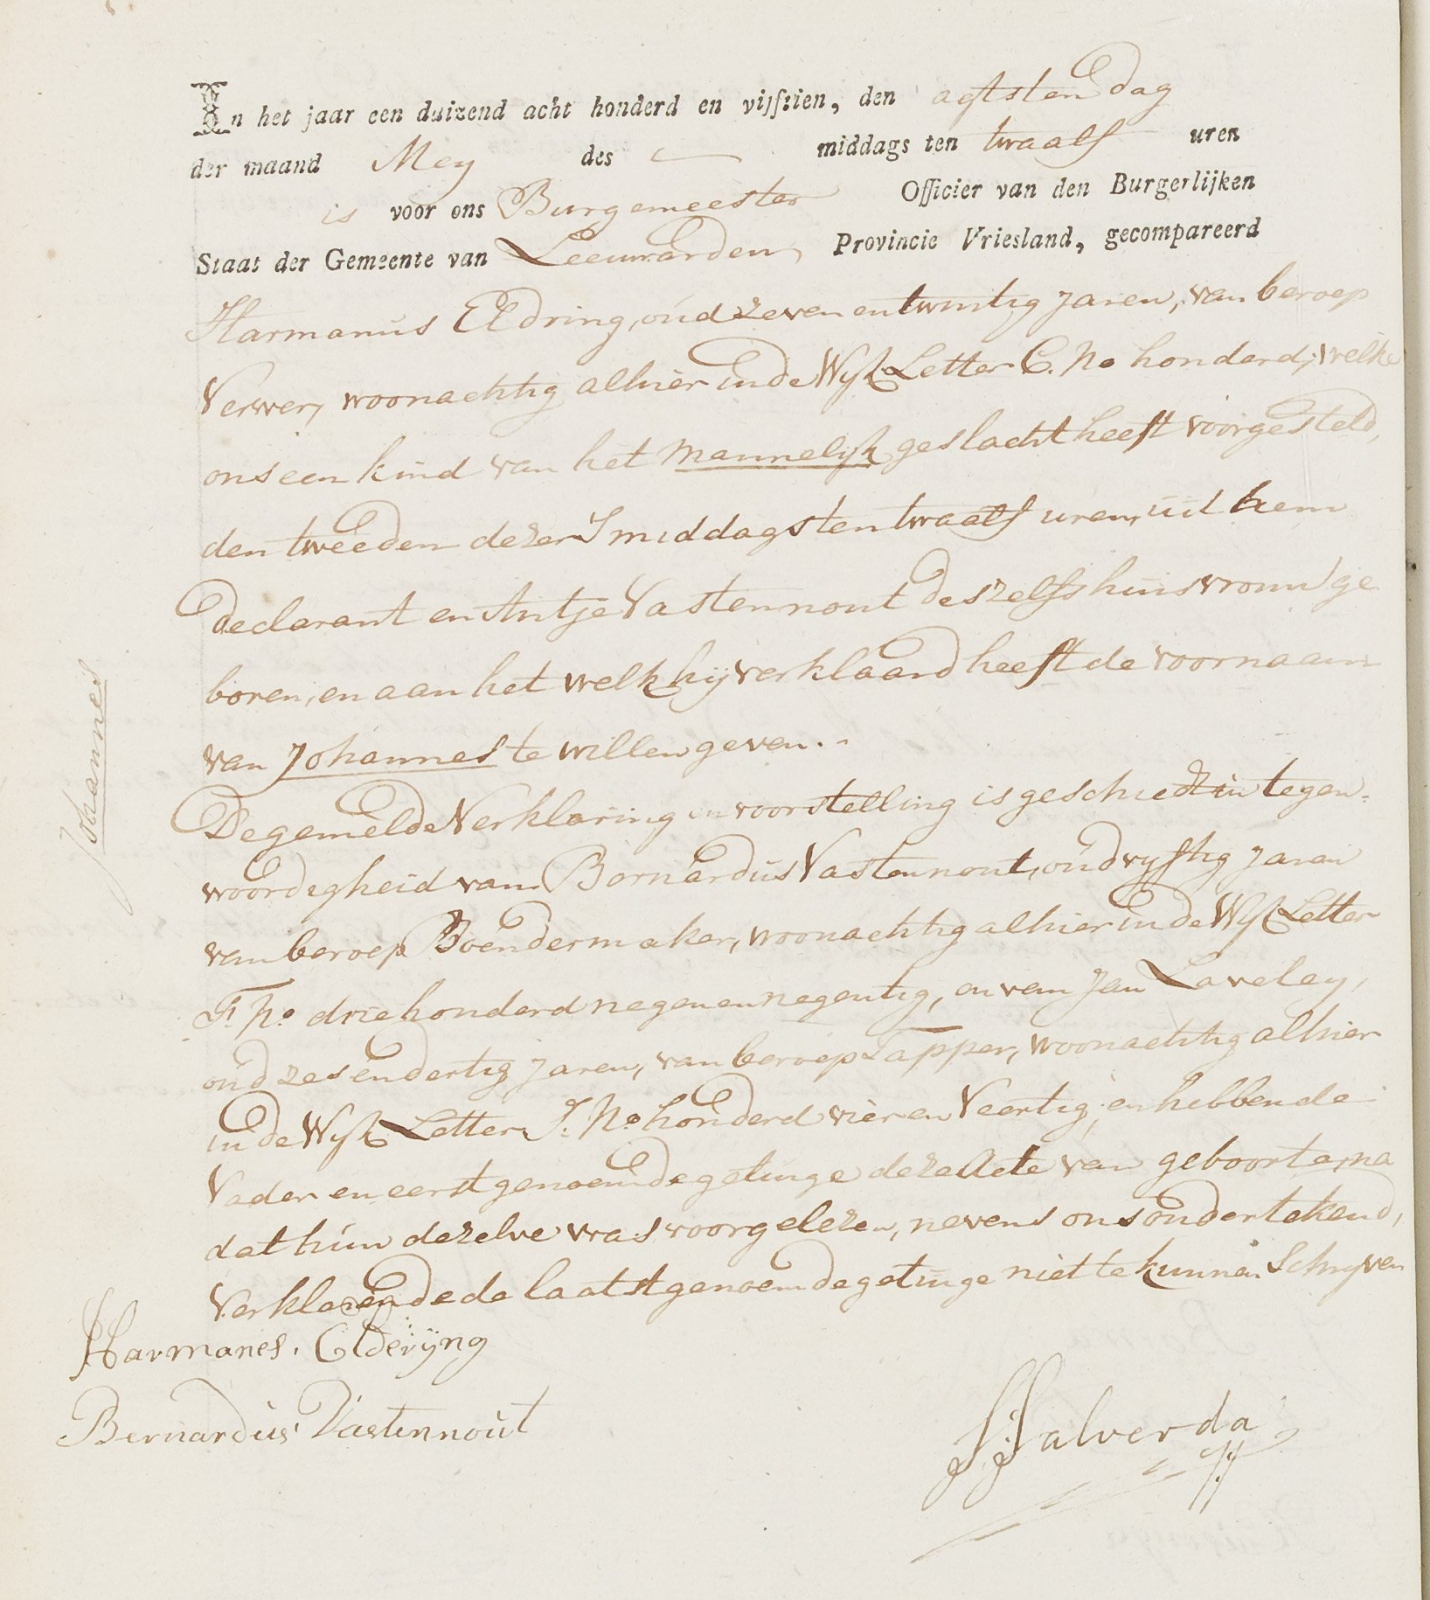 In het jaar een duizend acht honderd en vijftien, den agtsten dag
der maand Mey des — middags ten twaalf uren
is voor ons Burgemeester Officier van den Burgerlijken
Staat der Gemeente van Leeuwarden, Provincie Vriesland, gecompareerd
Harmanus Eldring, oud zeven en twintig jaren, van beroep
Verwer, woonachtig alhier in de Wyk Letter C. No honderd, welke
ons een kind van het mannelyk geslacht heeft voorgesteld,
den tweeden dezer Smiddags ten twaalf uren, uit hem
declarant en Antje Vastennout deszelfs huisvrouw ge
boren, en aan het welk hij verklaard heeft de voornaam
van Johannes te willen geven.
Johannes
De gemelde Verklaring en voorstelling is geschiedt in tegen=
woordigheid van Bernardus Vastennout, oud vyftig jaren
van beroep Boendermaker, woonachtig alhier in de Wyk Letter
F. No driehonderd negen en negentig, en van Jan Laveley,
oud zes en dertig jaren, van beroep Tapper, woonachtig alhier
in de Wyk Letter I. No honderd vier en Veertig, en hebben de
Vader en eerstgenoemde getuige deze Acte van geboorte, na
dat hun dezelve was voorgelezen, nevens ons ondertekend,
Verklarende de laatstgenoemde getuige niet te kunnen Schryven
Harmanes. Elderÿng
Bernardus Vastennout
S: Salverda